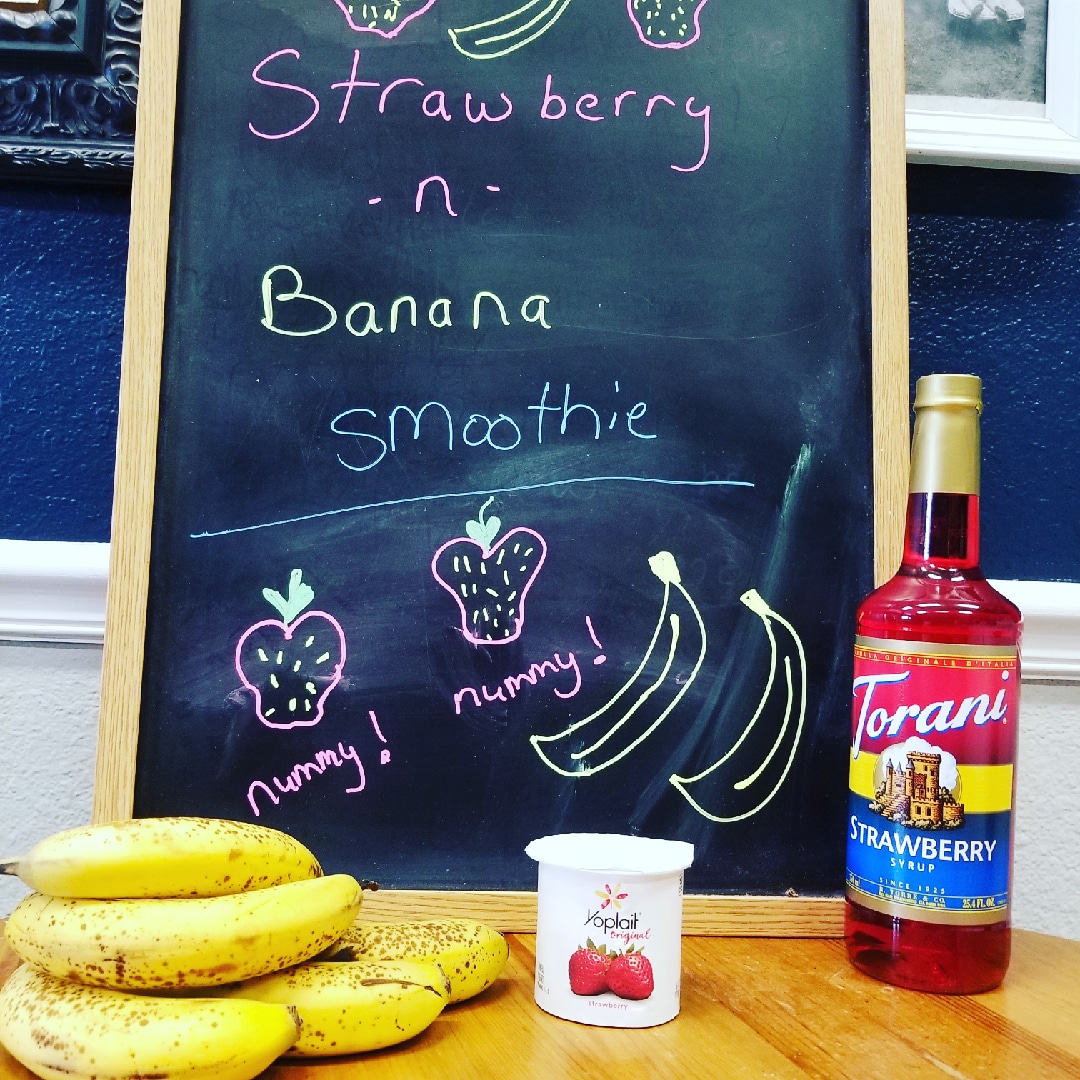 Strawberry
-n-
Banana
smoothie
nummy!
nummy!
Torani
STRAWBERRY
SYRUP
SINCE 1925
R. TORRE & CO.
25.4 FL. OZ.
Yoplait
Original
strawberry